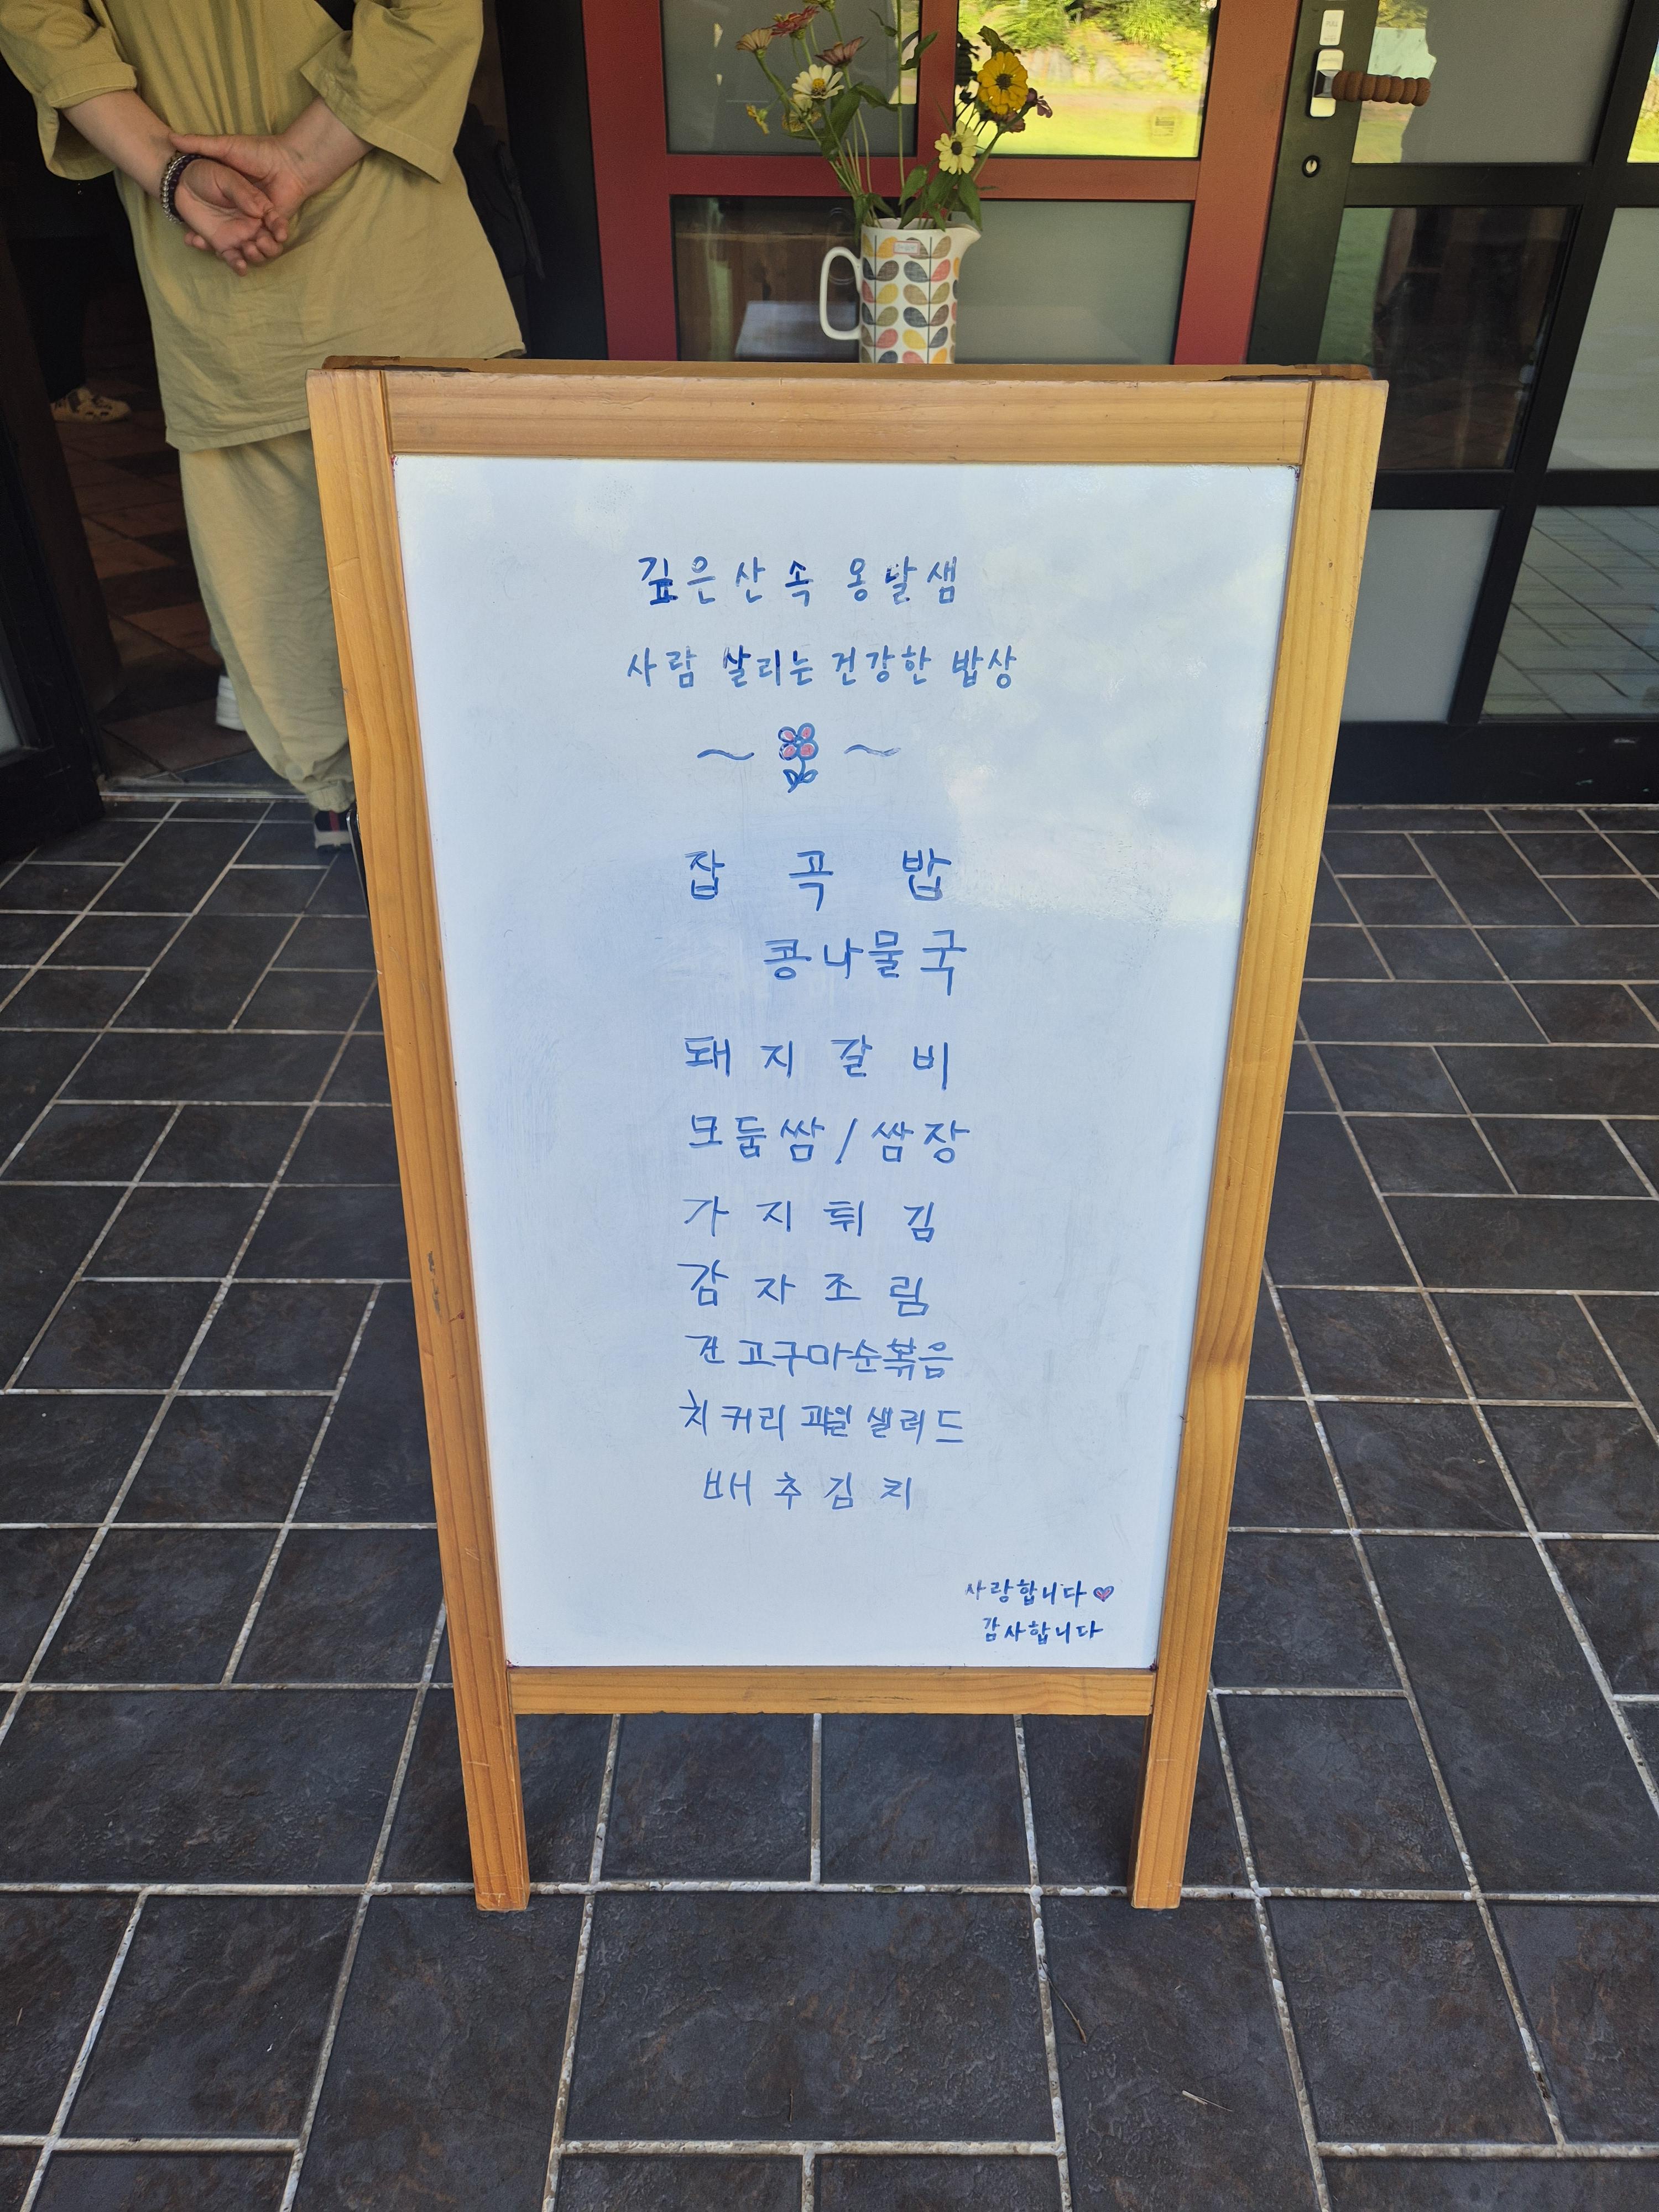 깊은산속 옹달샘
사람 살리는 건강한 밥상
잡곡밥
콩나물국
돼지갈비
모둠쌈/쌈장
가지튀김
감자조림
건고구마순볶음
치커리 과일 샐러드
배추김치
사랑합니다
감사합니다